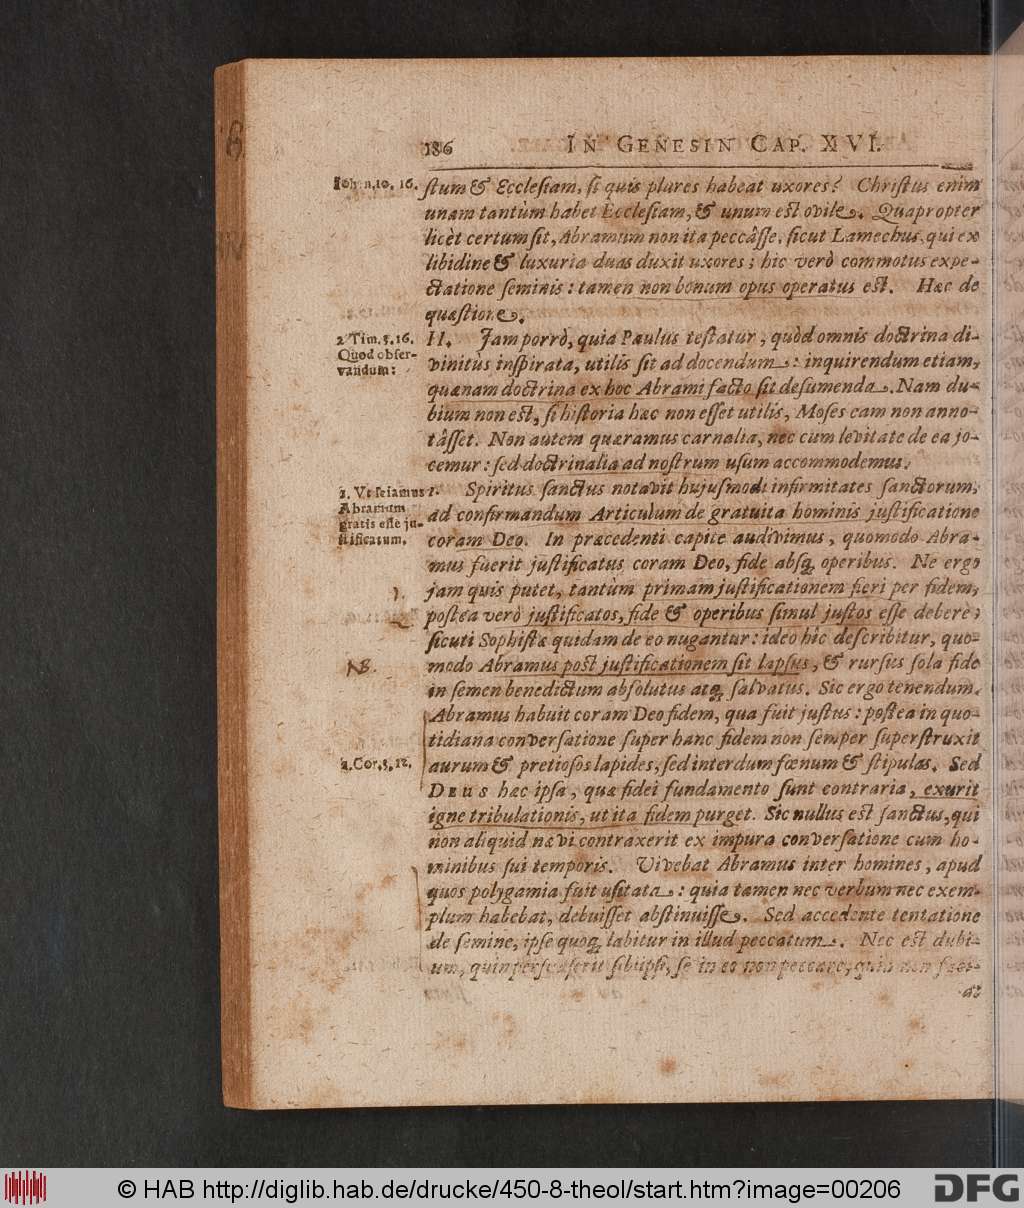 186 IN GENESIN CAP. XVI.
Iohan. 10. 16.
ſtum & Eccleſiam, ſi quis plures habeat uxores? Chriſtus enim
unam tantùm habet Eccleſiam, & unum est ovile. Quapropter
licèt certum ſit, Abramum non ita peccâſſe, ſicut Lamechus, qui ex
libidine & luxuria duas duxit uxores; hic verò commotus expe-
ctatione ſeminis: tamen non bonum opus operatus est. Hæc de
quæſtione.
2 Tim. 3. 16.
Quod obſer-
vandum:
II. Jam porrò, quia Paulus teſtatur, quòd omnis doctrina di-
vinitùs inſpirata, utilis ſit ad docendum: inquirendum etiam,
quænam doctrina ex hoc Abrami facto ſit deſumenda. Nam du-
bium non est, ſi hiſtoria hæc non eſſet utilis, Moſes eam non anno-
tâſſet. Non autem quæramus carnalia, nec cum levitate de ea jo-
cemur: ſed doctrinalia ad noſtrum uſum accommodemus.
1. Vt ſciamus
Abramum
gratis eſſe ju-
ſtificatum.
1. Spiritus ſanctus notavit hujuſmodi infirmitates ſanctorum,
ad confirmandum Articulum de gratuita hominis juſtificatione
coram Deo. In præcedenti capite audivimus, quomodo Abra-
mus fuerit juſtificatus coram Deo, fide abſq; operibus. Ne ergo
jam quis putet, tantùm primam juſtificationem fieri per fidem,
poſtea verò juſtificatos, fide & operibus ſimul juſtos eſſe debere;
ſicuti Sophiſtæ quidam de eo nugantur: ideo hîc deſcribitur, quo-
NB.
modo Abramus poſt juſtificationem ſit lapſus, & rurſus ſola fide
in ſemen benedictum abſolutus atq; ſalvatus. Sic ergo tenendum.
Abramus habuit coram Deo fidem, qua fuit juſtus: poſtea in quo-
tidiana converſatione ſuper hanc fidem non ſemper ſuperſtruxit
1. Cor. 3, 12.
aurum & pretioſos lapides, ſed interdum fœnum & ſtipulas. Sed
DEUS hæc ipſa, quæ fidei fundamento ſunt contraria, exurit
igne tribulationis, ut ita fidem purget. Sic nullus est ſanctus, qui
non aliquid nævi contraxerit ex impura converſatione cum ho-
minibus ſui temporis. Vivebat Abramus inter homines, apud
quos polygamia fuit uſitata: quia tamen nec verbum nec exem-
plum habebat, debuiſſet abſtinuiſſe. Sed accedente tentatione
de ſemine, ipſe quoq; labitur in illud peccatum. Nec est dubi-
um, quin perſuaſerit ſibi ipſi, ſe in eo non peccare, quia non
at
© HAB http://diglib.hab.de/drucke/450-8-theol/start.htm?image=00206
DFG